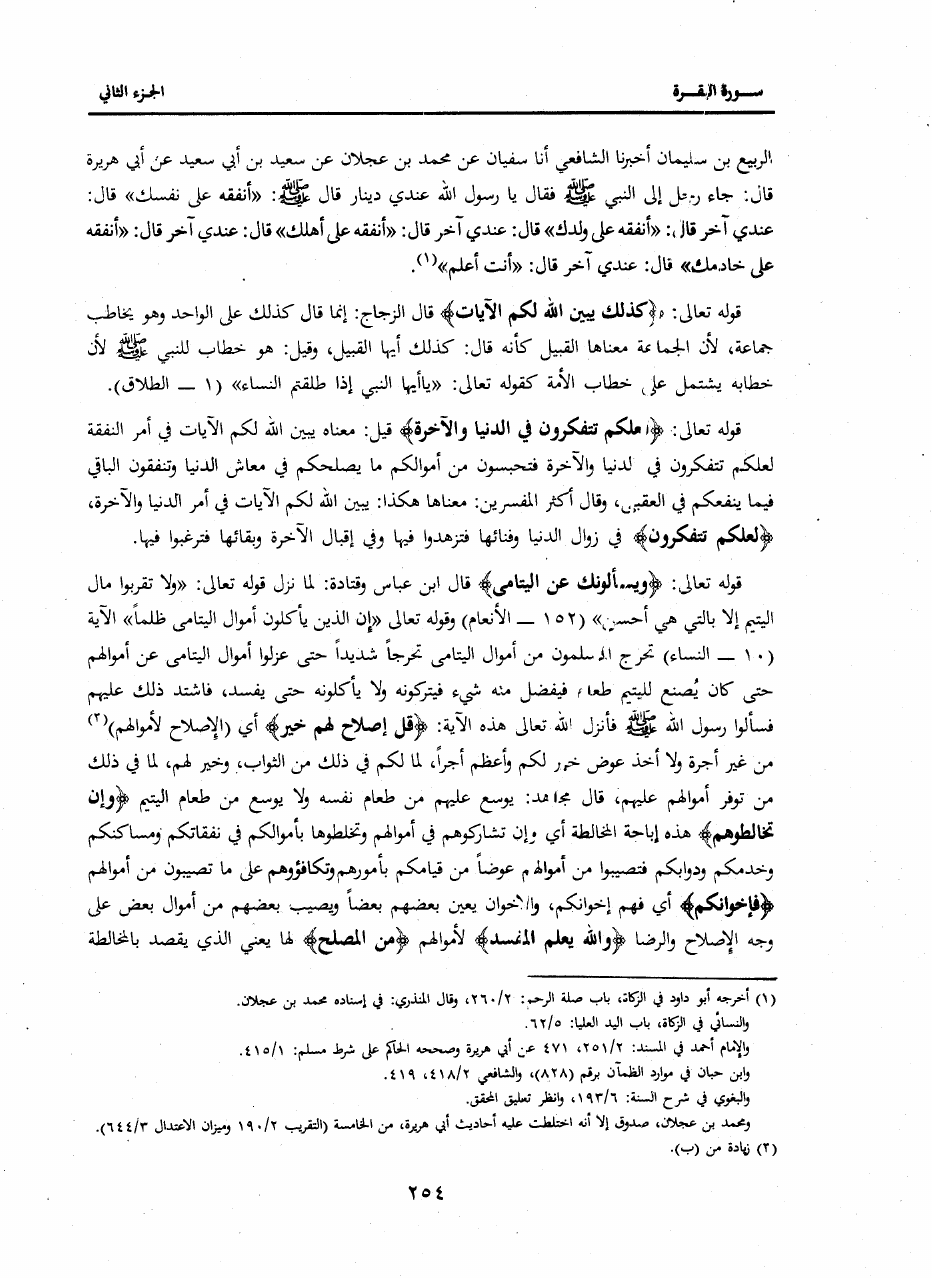 سورة البقرة
الجزء الثاني
الربيع بن سليمان أخبرنا الشافعي أنا سفيان عن محمد بن عجلان عن سعيد بن أبي سعيد عن أبي هريرة
قال: جاء رجل إلى النبي ﷺ فقال يا رسول الله عندي دينار قال ﷺ: «أنفقه على نفسك» قال:
عندي آخر قال: «أنفقه على ولدك» قال: عندي آخر قال: «أنفقه على أهلك» قال: عندي آخر قال: «أنفقه
على خادمك» قال: عندي آخر قال: «أنت أعلم»(١).
قوله تعالى: ﴿كذلك يبين الله لكم الآيات﴾ قال الزجاج: إنما قال كذلك على الواحد وهو يخاطب
جماعة، لأن الجماعة معناها القبيل كأنه قال: كذلك أيها القبيل، وقيل: هو خطاب للنبي ﷺ لأن
خطابه يشتمل على خطاب الأمة كقوله تعالى: «ياأيها النبي إذا طلقتم النساء» (١ ــ الطلاق).
قوله تعالى: ﴿لعلكم تتفكرون في الدنيا والآخرة﴾ قيل: معناه يبين الله لكم الآيات في أمر النفقة
لعلكم تتفكرون في الدنيا والآخرة فتحبسون من أموالكم ما يصلحكم في معاش الدنيا وتنفقون الباقي
فيما ينفعكم في العقبى، وقال أكثر المفسرين: معناها هكذا: يبين الله لكم الآيات في أمر الدنيا والآخرة،
﴿لعلكم تتفكرون﴾ في زوال الدنيا وفنائها فتزهدوا فيها وفي إقبال الآخرة وبقائها فترغبوا فيها.
قوله تعالى: ﴿ويسألونك عن اليتامى﴾ قال ابن عباس وقتادة: لما نزل قوله تعالى: «ولا تقربوا مال
اليتيم إلا بالتي هي أحسن» (١٥٢ ــ الأنعام) وقوله تعالى «إن الذين يأكلون أموال اليتامى ظلماً» الآية
(١٠ ــ النساء) تحرج المسلمون من أموال اليتامى تحرجاً شديداً حتى عزلوا أموال اليتامى عن أموالهم
حتى كان يُصنع لليتيم طعام فيفضل منه شيء فيتركونه ولا يأكلونه حتى يفسد، فاشتد ذلك عليهم
فسألوا رسول الله ﷺ فأنزل الله تعالى هذه الآية: ﴿قل إصلاح لهم خير﴾ أي (الإصلاح لأموالهم)(٢)
من غير أجرة ولا أخذ عوض خير لكم وأعظم أجراً، لما لكم في ذلك من الثواب، وخير لهم، لما في ذلك
من توفر أموالهم عليهم، قال مجاهد: يوسع عليهم من طعام نفسه ولا يوسع من طعام اليتيم ﴿وإن
تخالطوهم﴾ هذه إباحة المخالطة أي وإن تشاركوهم في أموالهم وتخلطوها بأموالكم في نفقاتكم ومساكنكم
وخدمكم ودوابكم فتصيبوا من أموالهم عوضاً من قيامكم بأمورهم وتكافؤوهم على ما تصيبون من أموالهم
﴿فإخوانكم﴾ أي فهم إخوانكم، والإخوان يعين بعضهم بعضاً ويصيب بعضهم من أموال بعض على
وجه الإصلاح والرضا ﴿والله يعلم المفسد﴾ لأموالهم ﴿من المصلح﴾ لها يعني الذي يقصد بالمخالطة
(١) أخرجه أبو داود في الزكاة، باب صلة الرحم: ٢٦٠/٢، وقال المنذري: في إسناده محمد بن عجلان.
والنسائي في الزكاة، باب اليد العليا: ٦٢/٥.
والإمام أحمد في المسند: ٢٥١/٢، ٤٧١ عن أبي هريرة وصححه الحاكم على شرط مسلم: ٤١٥/١.
وابن حبان في موارد الظمآن برقم (٨٢٨)، والشافعي ٤١٨/٢، ٤١٩.
والبغوي في شرح السنة: ١٩٣/٦، وانظر تعليق المحقق.
ومحمد بن عجلان، صدوق إلا أنه اختلطت عليه أحاديث أبي هريرة، من الخامسة (التقريب ١٩٠/٢ وميزان الاعتدال ٦٤٤/٣).
(٢) زيادة من (ب).
٢٥٤